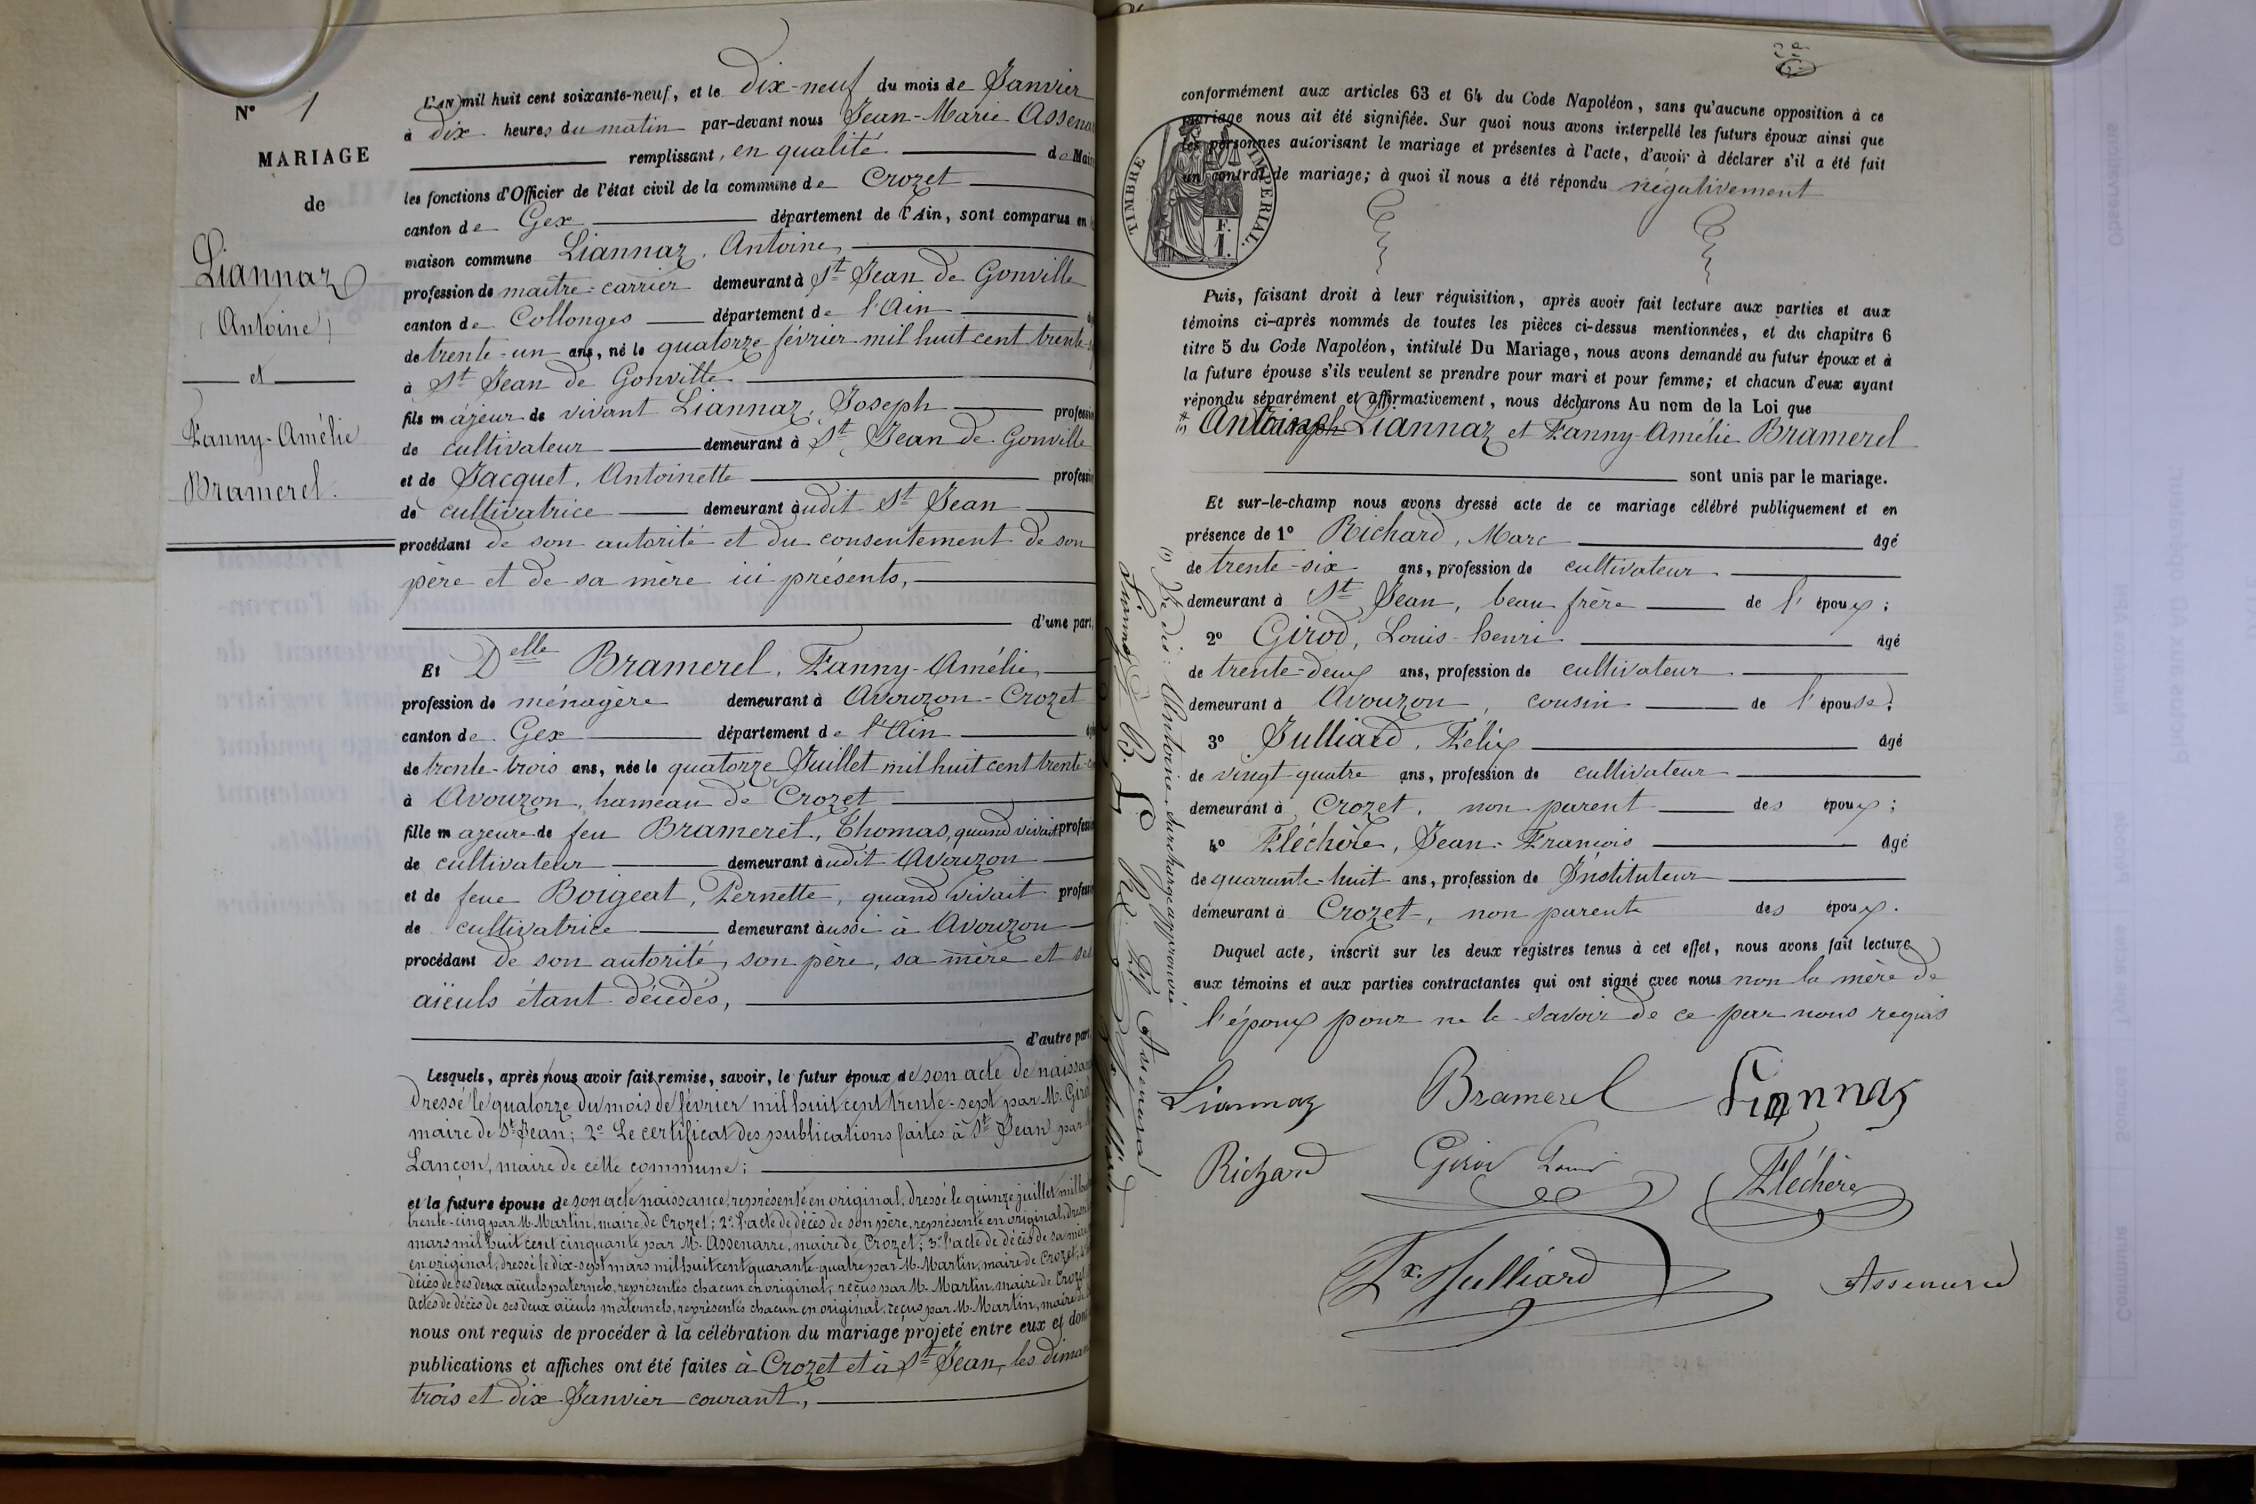 N° 1
MARIAGE
de
Liannaz
(Antoine)
et
Fanny-Amélie
Bramerel.
L'AN mil huit cent soixante-neuf, et le dix-neuf du mois de Janvier
à dix heures du matin par-devant nous Jean-Marie
remplissant, en qualité de
les fonctions d'Officier de l'état civil de la commune de Crozet
canton de Gex département de l'Ain, sont comparus en
maison commune Liannaz, Antoine,
profession de maître-carrier demeurant à St Jean de Gonville
canton de Collonges département de l'Ain
de trente-un ans, né le quatorze février mil huit cent trente
à St Jean de Gonville
fils majeur de vivant Liannaz, Joseph
de cultivateur demeurant à St Jean de Gonville
et de Jacquet, Antoinette
de cultivatrice demeurant audit St Jean
procédant de son autorité et du consentement de son
père et de sa mère ici présents,
d'une part,
Et Delle Bramerel, Fanny-Amélie,
profession de ménagère demeurant à Avouzon-Crozet
canton de Gex département de l'Ain
de trente-trois ans, née le quatorze Juillet mil huit cent trente
à Avouzon, hameau de Crozet
fille majeure de feu Bramerel, Thomas, quand vivait
de cultivateur demeurant audit Avouzon
et de feue Boigeat, Pernette, quand vivait
de cultivatrice demeurant aussi à Avouzon
procédant de son autorité, son père, sa mère et ses
aïeuls étant décédés,
d'autre part
Lesquels, après nous avoir fait remise, savoir, le futur époux de son acte de
dressé le quatorze du mois de février mil huit cent trente-sept par M.
maire de St Jean; 2° Le certificat des publications faites à St Jean par
Lançon, maire de cette commune;
et la future épouse de son acte naissance, représenté en original, dressé le quinze juillet
trente-cinq par M. Martin, maire de Crozet; 2° l'acte de décès de son père, représenté en original,
mars mil huit cent cinquante par M. Assenarre, maire de Crozet; 3° l'acte de décès de sa
en original, dressé le dix-sept mars mil huit cent quarante quatre par M. Martin, maire de Crozet;
décès de ses deux aïeuls paternels, représentés chacun en original, reçus par M. Martin, maire de
Actes de décès de ses deux aïeuls maternels, représentés chacun en original, reçus par M. Martin, maire
nous ont requis de procéder à la célébration du mariage projeté entre eux et dont
publications et affiches ont été faites à Crozet et à St Jean, les
trois et dix Janvier courant,
conformément aux articles 63 et 64 du Code Napoléon, sans qu'aucune opposition à ce
mariage nous ait été signifiée. Sur quoi nous avons interpellé les futurs époux ainsi que
les personnes autorisant le mariage et présentes à l'acte, d'avoir à déclarer s'il a été fait
un contrat de mariage; à quoi il nous a été répondu négativement
TIMBRE IMPERIAL.
F.
1.
Puis, faisant droit à leur réquisition, après avoir fait lecture aux parties et aux
témoins ci-après nommés de toutes les pièces ci-dessus mentionnées, et du chapitre 6
titre 5 du Code Napoléon, intitulé Du Mariage, nous avons demandé au futur époux et à
la future épouse s'ils veulent se prendre pour mari et pour femme; et chacun d'eux ayant
répondu séparément et affirmativement, nous déclarons Au nom de la Loi que
Liannaz et Fanny-Amélie Bramerel
sont unis par le mariage.
Et sur-le-champ nous avons dressé acte de ce mariage célébré publiquement et en
présence de 1° Richard, Marc âgé
de trente-six ans, profession de cultivateur
demeurant à St Jean, beau frère de l'époux;
2° Girod, Louis-henri âgé
de trente-deux ans, profession de cultivateur
demeurant à Avouzon, cousin de l'épouse;
3° Julliard, Félix âgé
de vingt-quatre ans, profession de cultivateur
demeurant à Crozet, non parent des époux;
4° Fléchère, Jean-François âgé
de quarante-huit ans, profession de Instituteur
demeurant à Crozet, non parent des époux.
Duquel acte, inscrit sur les deux registres tenus à cet effet, nous avons fait lecture
aux témoins et aux parties contractantes qui ont signé avec nous non la mère de
l'époux pour ne le savoir de ce par nous requis
Liannaz Bramerel Liannaz
Richard Girod Louis Fléchère
Fx. Julliard
(1) Antoine, surcharge approuvée